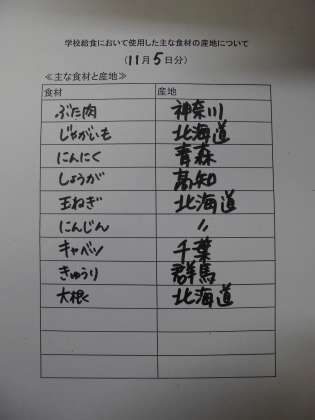 学校給食において使用した主な食材の産地について
(11月5日分)
≪主な食材と産地≫
食材 産地
ぶた肉 神奈川
じゃがいも 北海道
にんにく 青森
しょうが 高知
玉ねぎ 北海道
にんじん 〃
キャベツ 千葉
きゅうり 群馬
大根 北海道